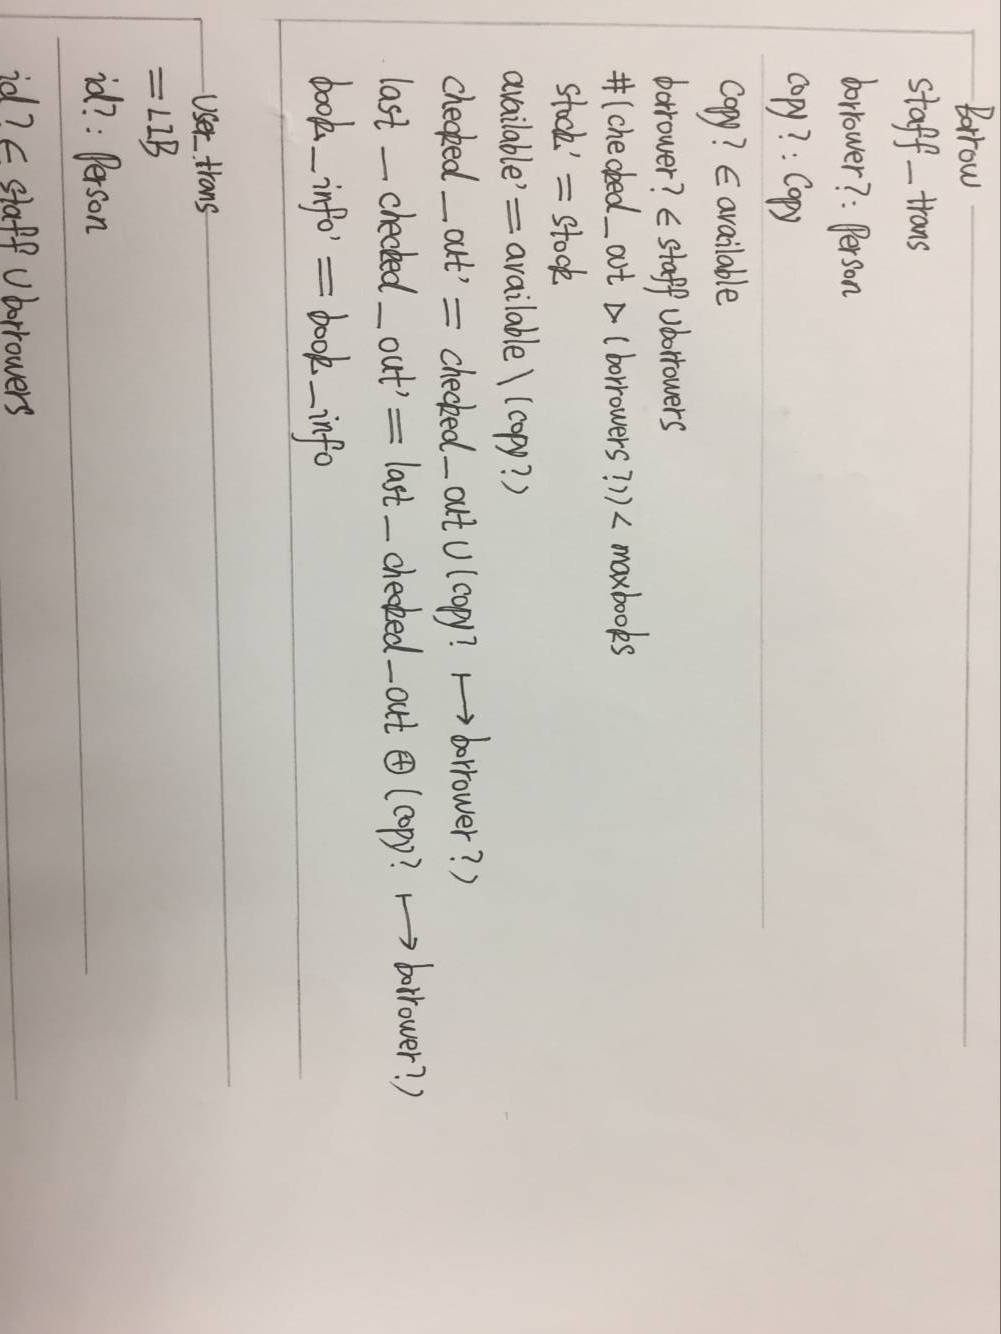 Borrow
staff_trans
borrower?: Person
copy?: Copy
copy? ∈ available
borrower? ∈ staff ∪ borrowers
#(checked_out ▷ (borrowers?)) < maxbooks
stock' = stock
available' = available \ (copy?)
checked_out' = checked_out ∪ (copy? ↦ borrower?)
last_checked_out' = last_checked_out ⊕ (copy? ↦ borrower?)
book_info' = book_info
user_trans
=LIB
id?: Person
id? ∈ staff ∪ borrowers